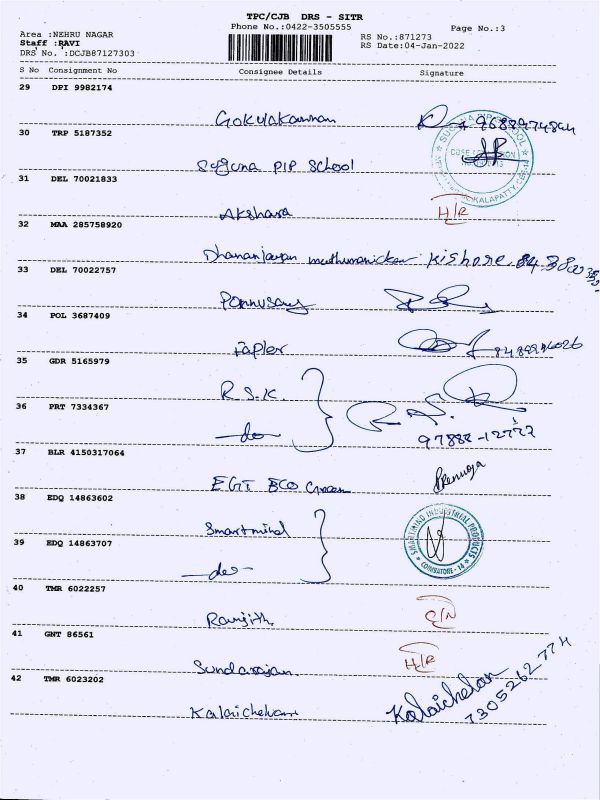 TPC/CJB DRS - SITR
Phone No.:0422-3505555
Page No.:3
Area :NEHRU NAGAR
Staff :RAVI
DRS No. :DCJB87127303
RS No.:871273
RS Date:04-Jan-2022
S No Consignment No Consignee Details Signature
29 DPI 9982174
Gokulakannan
30 TRP 5187352
Suguna PIP School
31 DEL 70021833
Akshara H/R
32 MAA 285758920
Dhananjayan muthumanickam Kishore
33 DEL 70022757
Ponnusamy
34 POL 3687409
35 GDR 5165979
R.S.K.
36 PRT 7334367
do
97888-12777
37 BLR 4150317064
EGI ECO Green Renuga
38 EDQ 14863602
Smartmind
SMARTMIND INDUSTRIAL PRODUCTS
COIMBATORE - 14
39 EDQ 14863707
do
40 TMR 6022257
Ranjith
41 GNT 86561
Sundarajan H/R
42 TMR 6023202
Kalaichelvan Kalaichelvan
7305262774